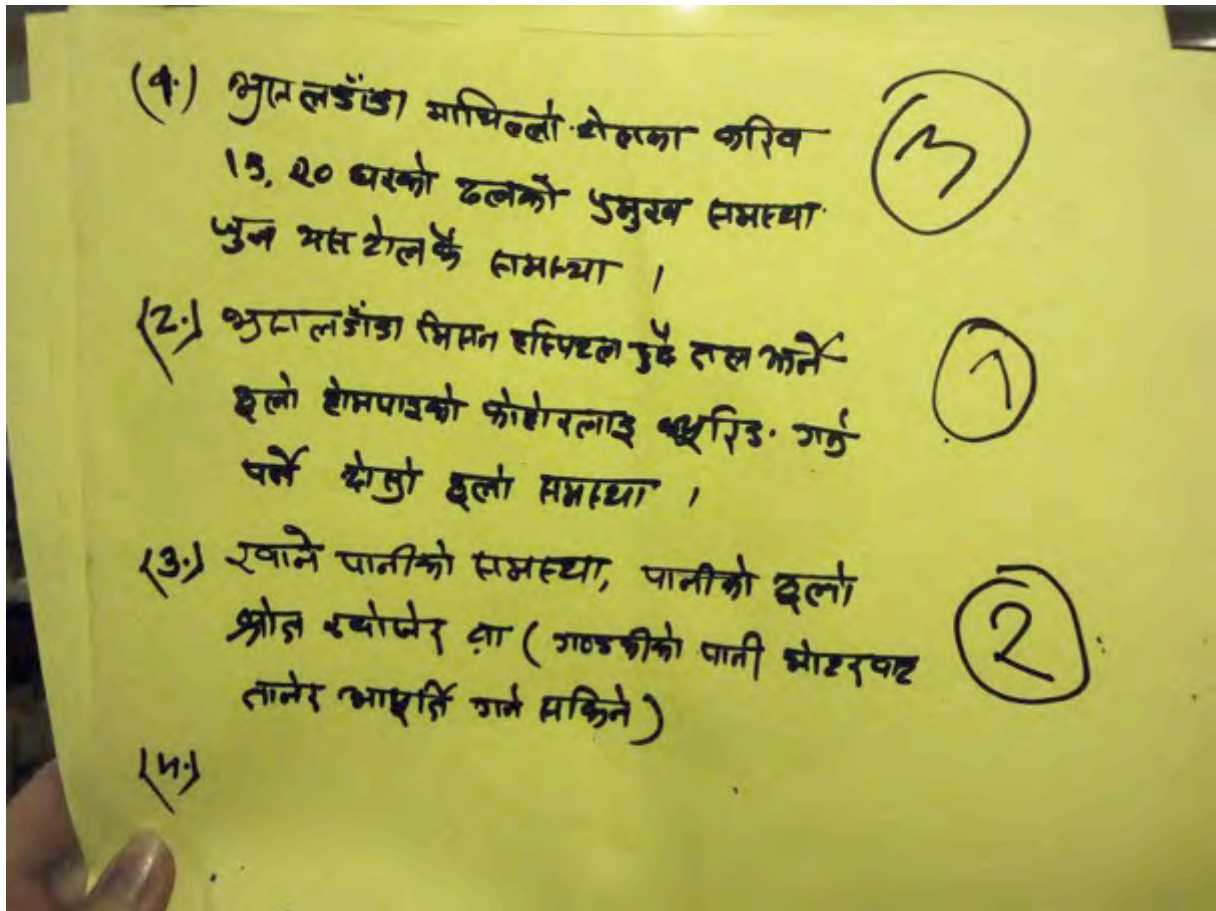 (१.) भुसालडाँडा माथिल्लो टोलका करिव
15, २० घरको ढलको प्रमुख समस्या
जुन यस टोलकै समस्या ।
3
(2.) भुसालडाँडा मिसन हस्पिटल हुदै तल झर्ने
ठूलो होमपाइको फोहोरलाइ गर्नु
पर्ने दोस्रो ठूलो समस्या ।
1
(3.) खाने पानीको समस्या, पानीको ठूलो
श्रोत खोजेर वा ( गण्डकीको पानी मोटरवाट
तानेर आपूर्ति गर्न सकिने)
2
(४.)